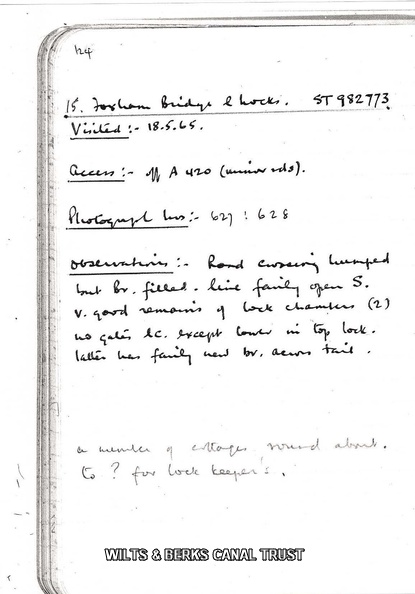 124
15. Foxham Bridge & Locks. ST 982773
Visited :- 18.5.65.
Access :- off A 420 (minor rds).
Photograph Nos :- 627 : 628
Observations :- Road crossing humped
but Br. filled. Line fairly open S.
v. good remains of lock chambers (2)
no gates &c. except lower in top lock.
latter has fairly new br. across tail.
a number of cottages round about.
to ? for lock keepers.
WILTS & BERKS CANAL TRUST